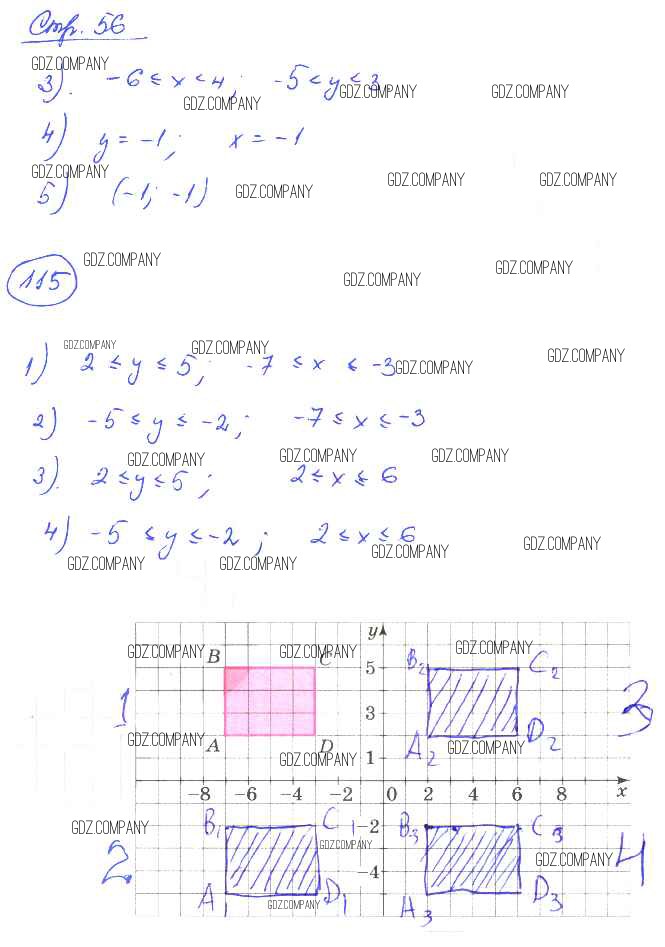 Стр. 56
GDZ.COMPANY
3). -6 ≤ x < 4; -5 < y ≤ 3.
GDZ.COMPANY GDZ.COMPANY GDZ.COMPANY
4) y = -1; x = -1
GDZ.COMPANY GDZ.COMPANY GDZ.COMPANY GDZ.COMPANY
5) (-1; -1)
GDZ.COMPANY GDZ.COMPANY
115 GDZ.COMPANY
GDZ.COMPANY GDZ.COMPANY GDZ.COMPANY
1) 2 ≤ y ≤ 5; -7 ≤ x ≤ -3 GDZ.COMPANY
2) -5 ≤ y ≤ -2; -7 ≤ x ≤ -3
GDZ.COMPANY GDZ.COMPANY GDZ.COMPANY
3). 2 ≤ y ≤ 5; 2 ≤ x ≤ 6
4) -5 ≤ y ≤ -2; 2 ≤ x ≤ 6
GDZ.COMPANY GDZ.COMPANY GDZ.COMPANY GDZ.COMPANY
y
GDZ.COMPANY B GDZ.COMPANY C GDZ.COMPANY
5 B2 C2
1 3 3
GDZ.COMPANY A D A2 GDZ.COMPANY D2
GDZ.COMPANY 1
-8 -6 -4 -2 0 2 4 6 8 x
GDZ.COMPANY B1 C1 -2 B3 C3
2 GDZ.COMPANY GDZ.COMPANY 4
-4
A1 D1 A3 D3
GDZ.COMPANY